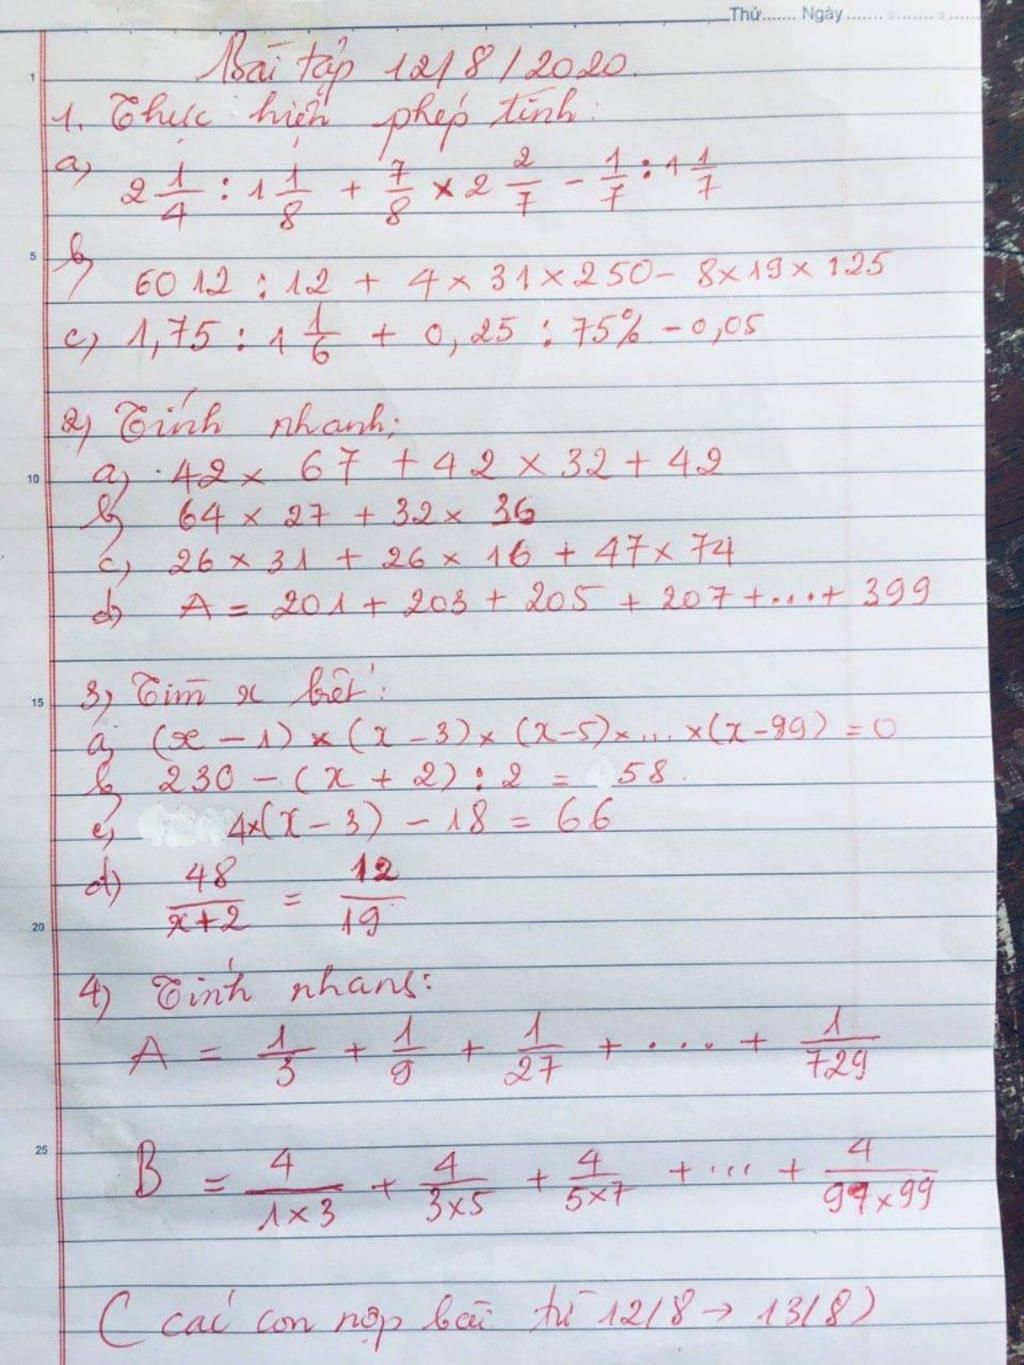 Thứ....... Ngày ....................
Bài tập 12/8/2020.
1. Thực hiện phép tính:
a) 2 1/4 : 1 1/8 + 7/8 × 2 2/7 - 1/7 : 1 1/7
b) 6012 : 12 + 4 × 31 × 250 - 8 × 19 × 125
c) 1,75 : 1 1/6 + 0,25 : 75% - 0,05
2) Tính nhanh;
a) 42 × 67 + 42 × 32 + 42
b) 64 × 27 + 32 × 36
c) 26 × 31 + 26 × 16 + 47 × 74
d) A = 201 + 203 + 205 + 207 + ... + 399
3) Tìm x biết:
a) (x - 1) × (x - 3) × (x - 5) × ... × (x - 99) = 0
b) 230 - (x + 2) : 2 = 58.
c) 4×(x - 3) - 18 = 66
d) 48/x+2 = 12/19
4) Tính nhanh:
A = 1/3 + 1/9 + 1/27 + .... + 1/729
B = 4/1×3 + 4/3×5 + 4/5×7 + ... + 4/97×99
(các con nộp bài từ 12/8 → 13/8)
1
5
10
15
20
25